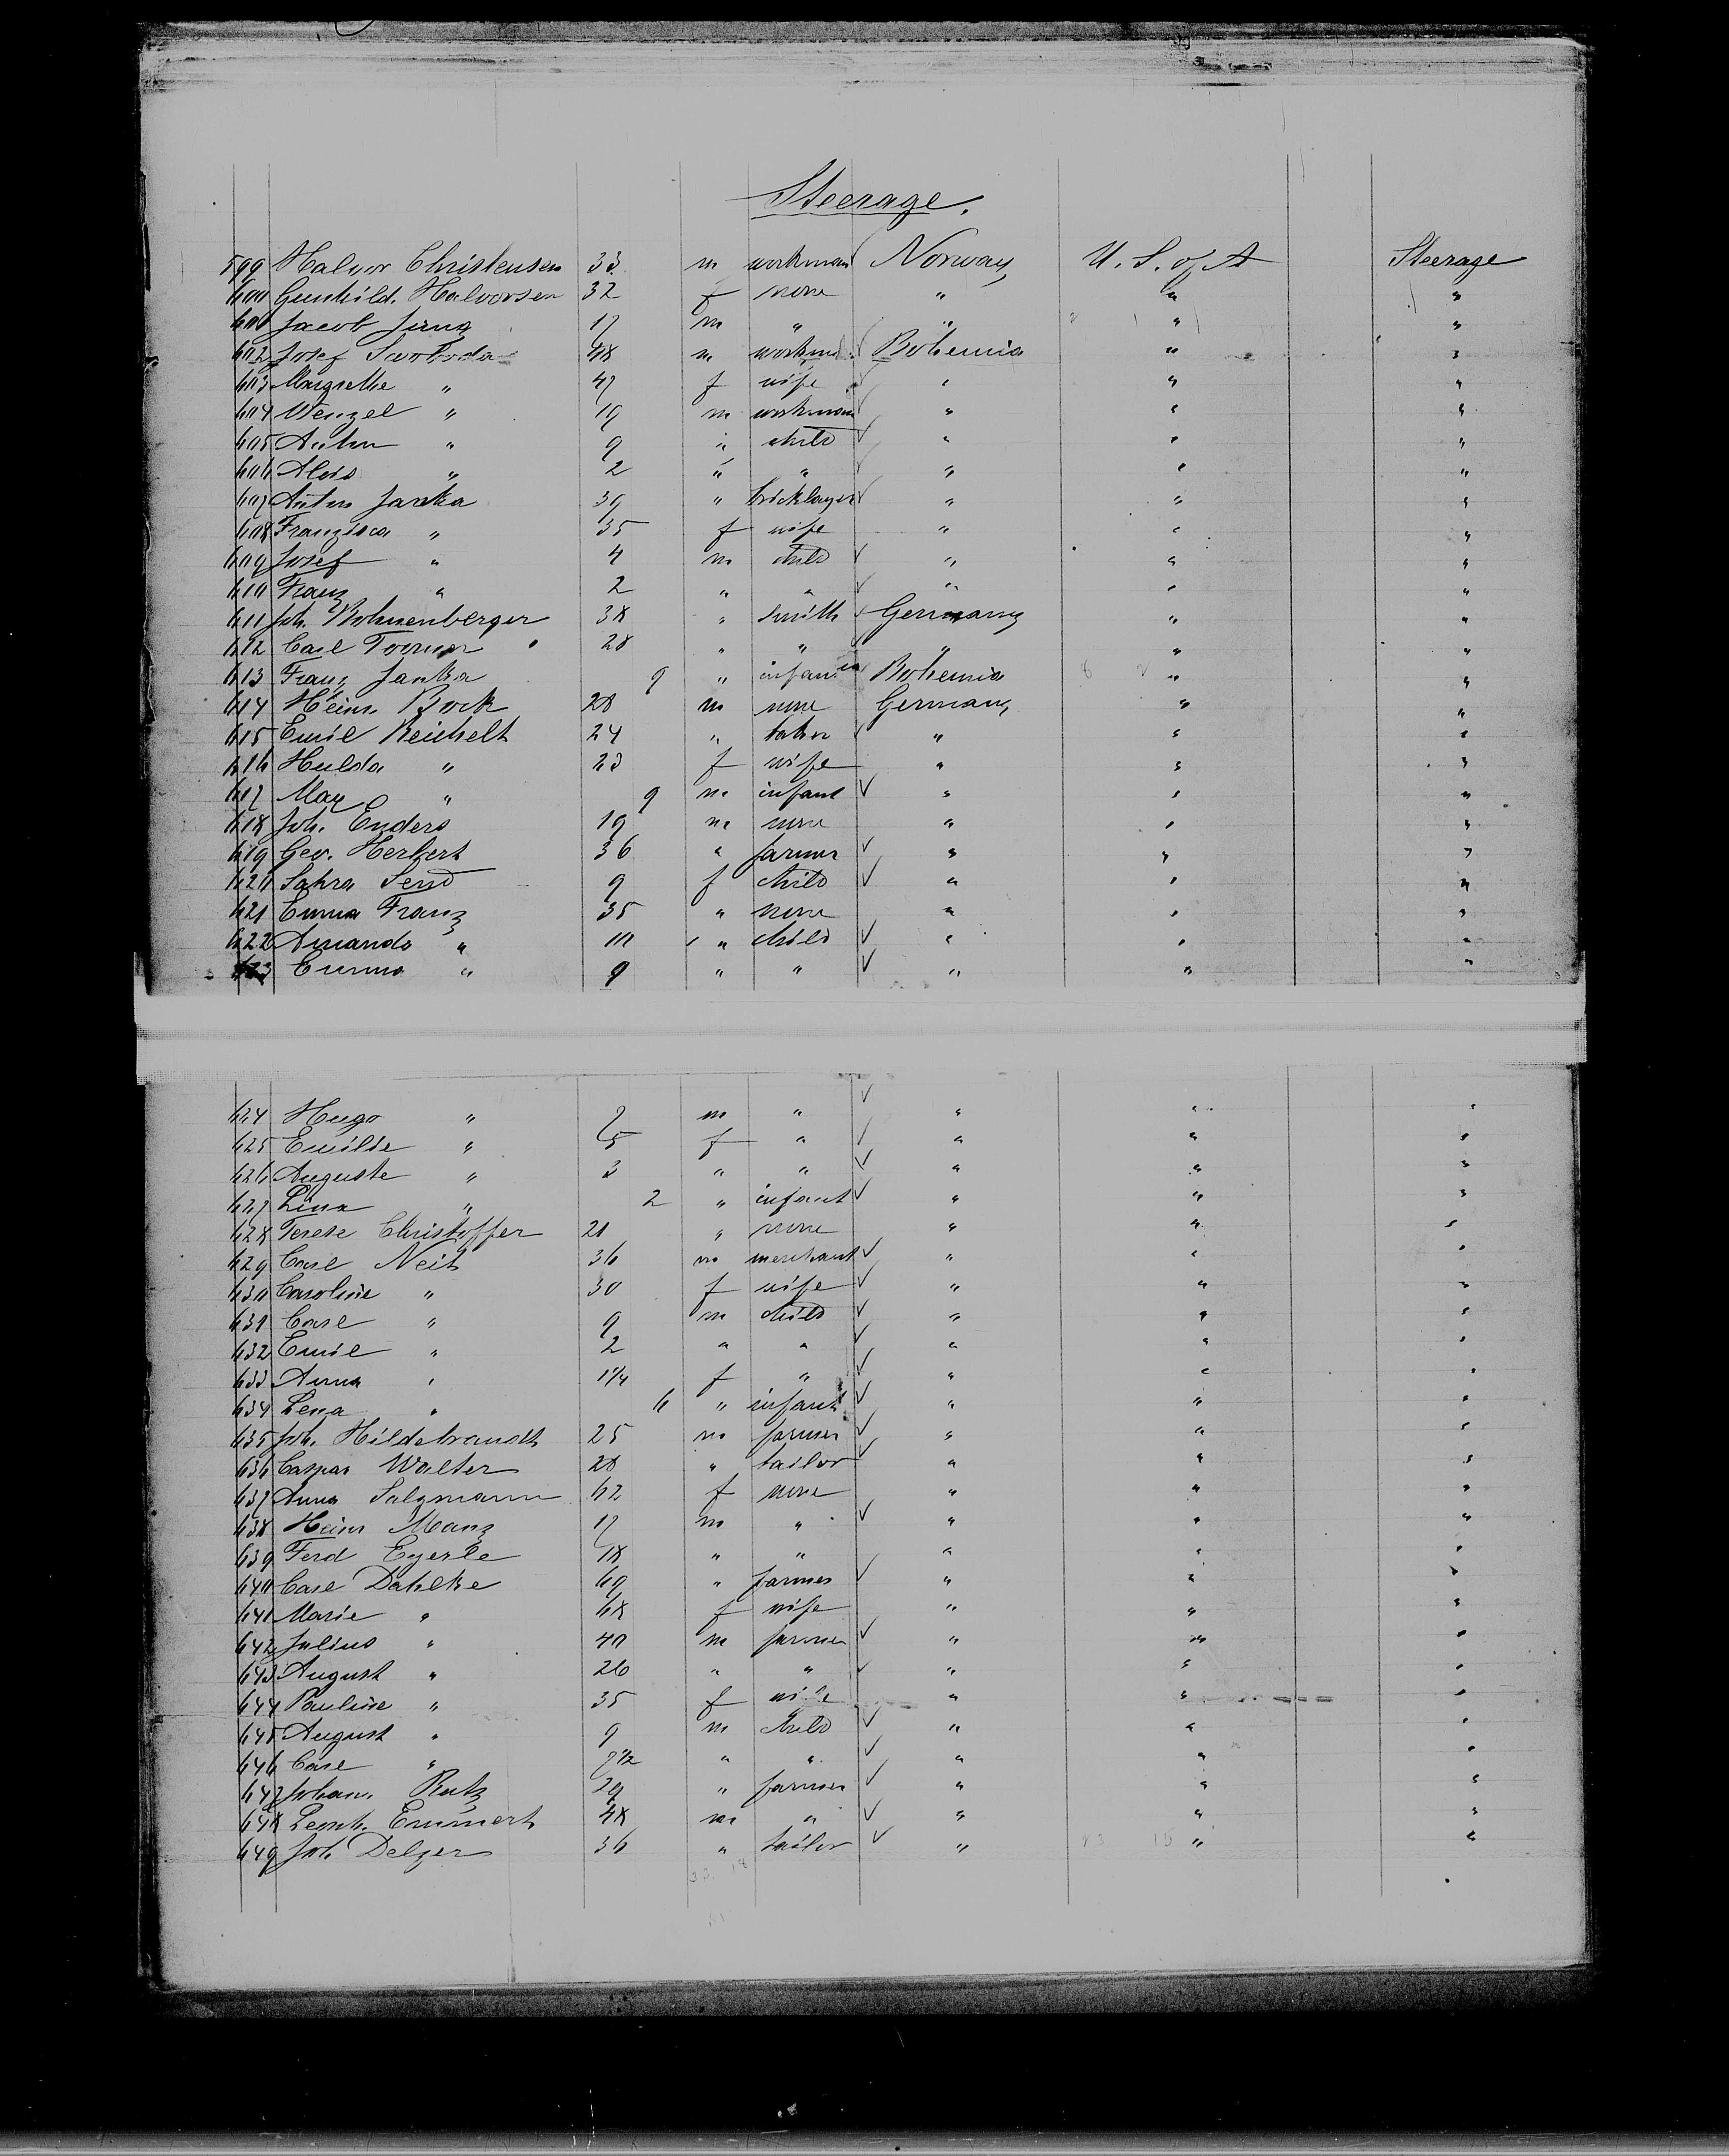 Steerage.
599 Halvor Christensen 33 m workman Norway U. S. of A Steerage
600 Gunhild. Halvorsen 32 f none " " "
601 Jacob Jung 17 m " " " "
602 Josef Swoboda 48 m workmn Bohemia " "
603 Margrethe " 47 f wife " " "
604 Wenzel " 19 m workman " " "
605 Anton " 9 " child " " "
606 Alois " 2 " " " " "
607 Anton Janka 39 " bricklayer " " "
608 Franzisca " 35 f wife " " "
609 Josef " 4 m child " " "
610 Franz " 2 " " " " "
611 Joh. Bohnenberger 38 " smith Germany " "
612 Carl 28 " " " " "
613 Franz Janka 9 " infant Bohemia " "
614 Heinr. Bock 28 m none Germany " "
615 Emil Reichelt 24 " " " "
616 Hulda " 23 f wife " " "
617 Max " 9 m infant " " "
618 Joh. Enders 19 m none " " "
619 Geo. Herbert 36 " farmer " " "
620 Sahra Send 9 f child " " "
621 Emma Franz 35 " none " " "
622 Amanda " 10 " child " " "
623 Emma " 9 " " " " "
624 Hugo " 7 m " " " "
625 Emilie " 5 f " " " "
626 Auguste " 3 " " " " "
627 Lina " 2 " infant " " "
628 Terese Christoffer 21 " none " " "
629 Carl Neit 36 m merchant " " "
630 Caroline " 30 f wife " " "
631 Carl " 9 m child " " "
632 Emil " 2 " " " " "
633 Anna " 1 1/4 f " " " "
634 Lena " 6 " infant " " "
635 Joh. Hildebrandt 25 m farmer " " "
636 Caspar Walter 28 " tailor " " "
637 Anna Salzmann 62 f none " " "
638 Heinr Manz 17 m " " " "
639 Ferd Egerle 18 " " " " "
640 Carl Dahlke 69 " farmer " " "
641 Marie " 68 f wife " " "
642 Julius " 40 m farmer " " "
643 August " 26 " " " " "
644 Pauline " 35 f wife " " "
645 August " 9 m child " " "
646 Carl " 7 1/2 " " " " "
647 Johann Rutz 29 " farmer " " "
648 Leonh. Emmert 48 m " " " "
649 Joh. Delzer 36 " tailor " " "